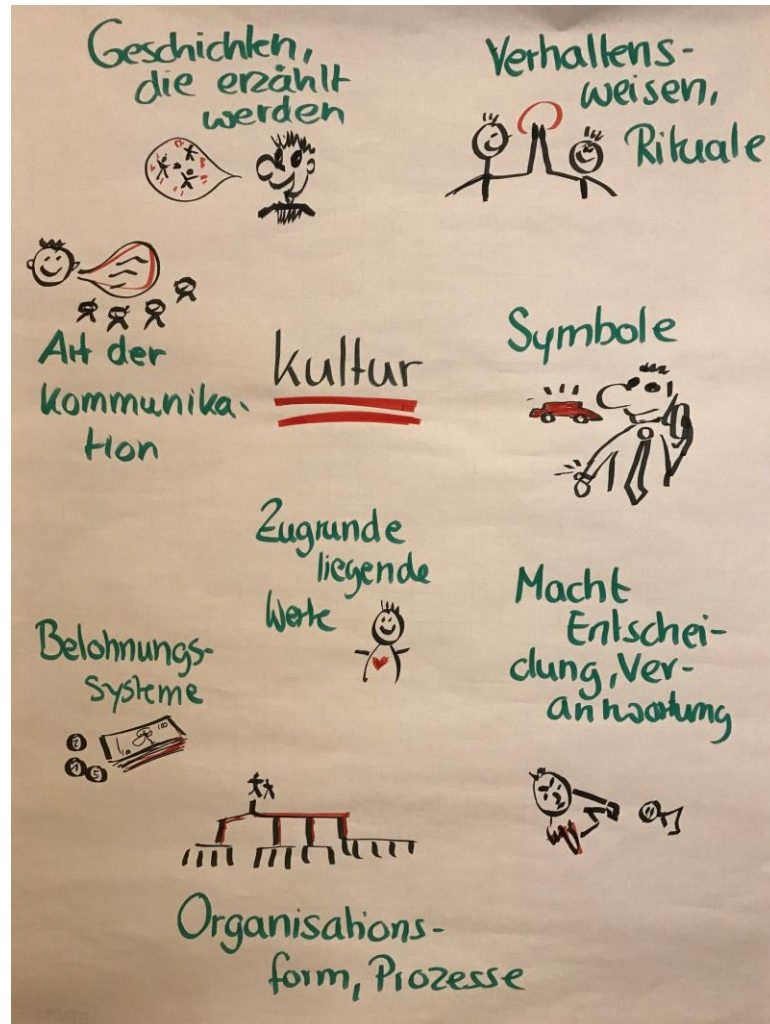 Geschichten,
die erzählt
werden
Verhaltens-
weisen,
Rituale
Art der
kommunika-
tion
kultur
Symbole
Zugrunde
liegende
Werte
Macht
Entschei-
dung, Ver-
antwortung
Belohnungs-
systeme
Organisations-
form, Prozesse